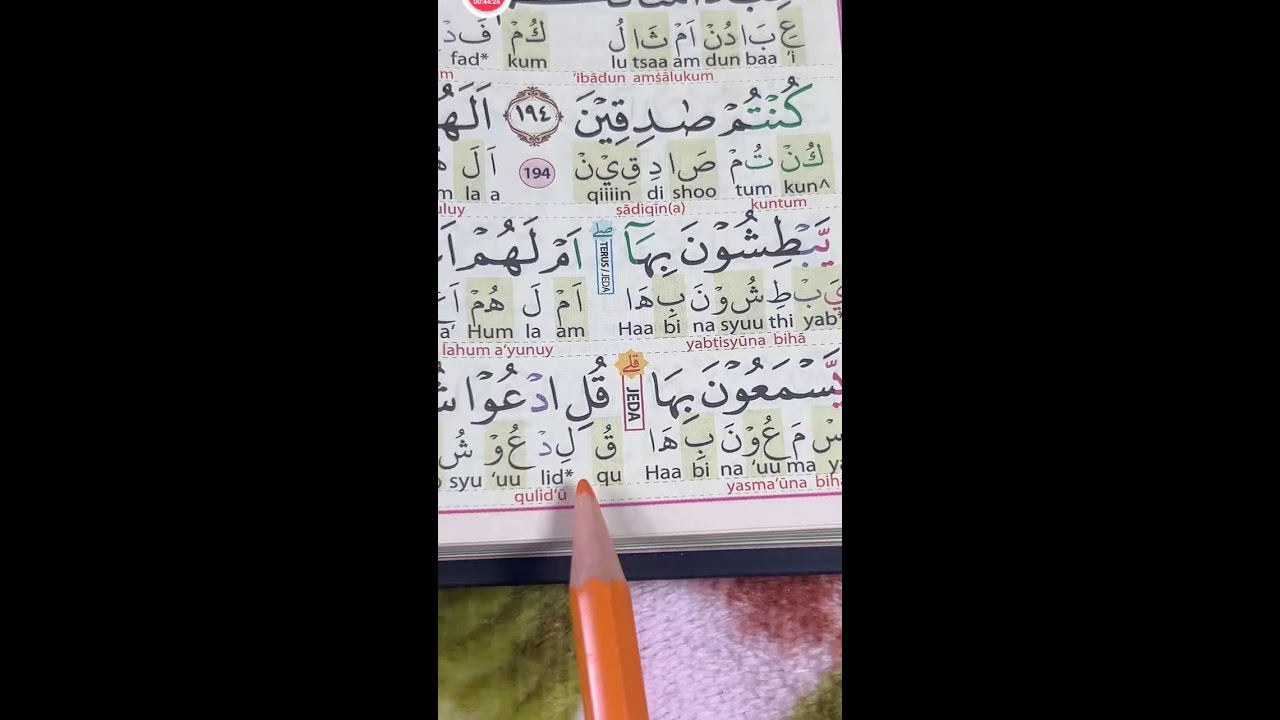 00:44:26
عِ بَا دُنْ اَمْ ثَا لُ كُمْ فَدْ
fad* kum lu tsaa am dun baa 'i
'ibādun amṡālukum
كُنْتُمْ صٰدِقِيْنَ ١٩٤ اَلَهُ
كُنْ تُمْ صَا دِ قِيْنْ 194 اَ لَ
m la a qiiiin di shoo tum kun^
uluy ṣādiqīn(a) kuntum
يَّبْطِشُوْنَ بِهَآ ۖ اَمْ لَهُمْ
TERUS / JEDA
يَبْ طِ شُوْ نَ بِ هَا اَمْ لَ هُمْ اَعْ
a' Hum la am Haa bi na syuu thi yab*
lahum a'yunuy yabṭisyūna bihā
يَّسْمَعُوْنَ بِهَا ۗ قُلِ ادْعُوْا
JEDA
سْ مَ عُوْ نَ بِ هَا قُ لِدْ عُوْ شُ
syu 'uu lid* qu Haa bi na 'uu ma ya
qulid'ū yasma'ūna bih